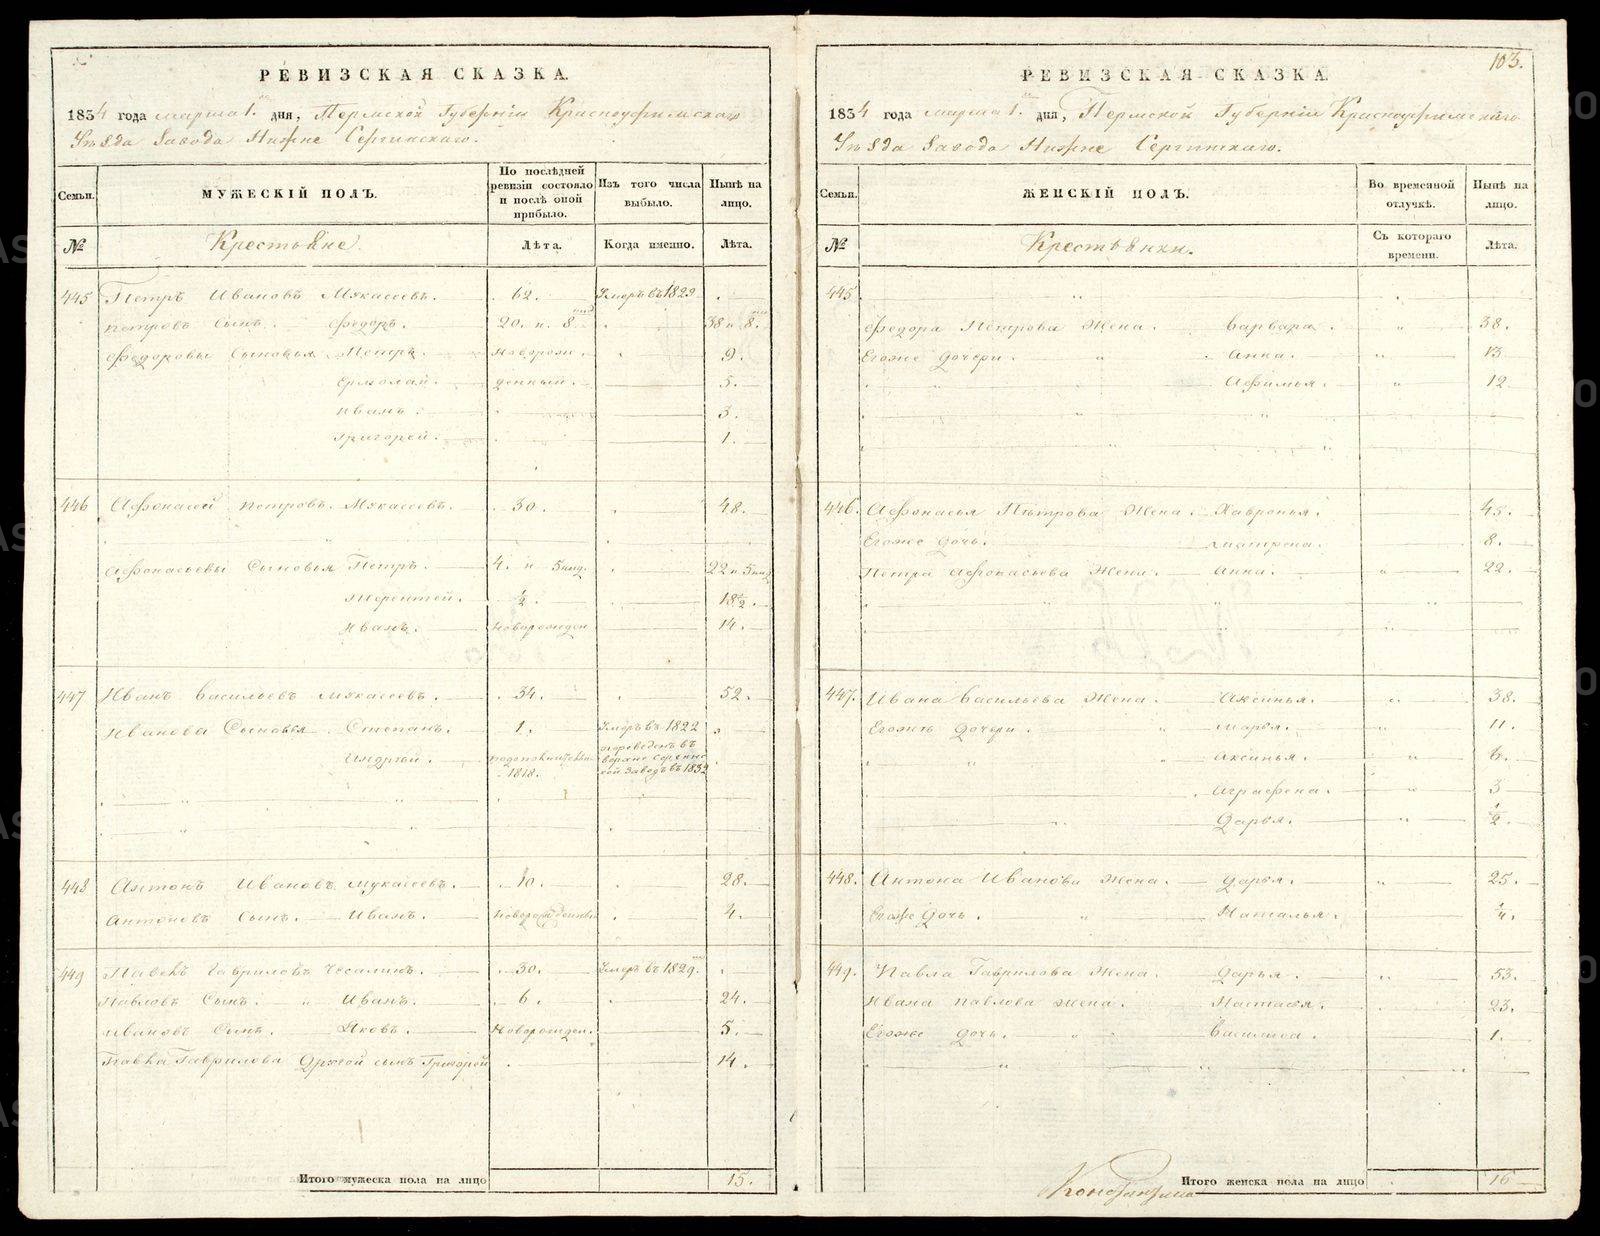 РЕВИЗСКАЯ СКАЗКА.
1834 года марта 1. дня, Пермской Губерніи Красноуфимскаго
Уѣзда Завода Нижне Сергинскаго.
Семьи. МУЖЕСКІЙ ПОЛЪ. По послѣдней ревизіи состояло и послѣ оной прибыло. Изъ того числа выбыло. Нынѣ на лицо.
№ Крестьяне. Лѣта. Когда именно. Лѣта.
445 Петръ Ивановъ 62. Умеръ въ 1829
Петровъ Сынъ. Федоръ. 20. и. 8. 38 и 8.
Федоровы Сыновья Петръ. новорож- 9.
Ермолай. денный. 5.
Иванъ. 3.
Григорей. 1.
446 Афонасей Петровъ. 30. 48.
Афонасьевы Сыновья Петръ. 4. и 5 22 и 5
Терентей. ½. 18½.
Иванъ. новорожден 14.
447 Иванъ Васильевъ 34. 52.
Ивановы Сыновья Степанъ. 1. Умеръ въ 1822
1818. переведенъ въ верхне Сергинской Заводъ въ 1832
448 Антонъ Ивановъ 10. 28.
Антоновъ Сынъ. Иванъ. 4.
449 Павелъ Гавриловъ 30. Умеръ въ 1829.
Павловъ Сынъ. Иванъ. 6. 24.
Ивановъ Сынъ. Яковъ. Новорожден. 5.
Павла Гаврилова Другой сынъ Григорей 14.
Итого мужеска пола на лицо 15.
103.
РЕВИЗСКАЯ СКАЗКА.
1834 года марта 1. дня, Пермской Губерніи Красноуфимскаго
Уѣзда Завода Нижне Сергинскаго.
Семьи. ЖЕНСКІЙ ПОЛЪ. Во временной отлучкѣ. Нынѣ на лицо.
№ Крестьянки. Съ котораго времени. Лѣта.
445
Федора Петрова Жена. Варвара. 38.
Егоже дочери. Анна. 13
Афимья. 12
446. Афонасья Петрова Жена. Хавронья. 45.
Егоже дочь. Матрена. 8.
Петра Афонасьева Жена. Анна. 22.
447. Ивана Васильева Жена. Аксинья. 38.
Егожъ дочери. Марья. 11.
Аксинья. 6.
Аграфена. 3
Дарья. ½.
448. Антона Иванова Жена. Дарья. 25.
Егоже дочь. Наталья. ¼.
449. Павла Гаврилова Жена. Дарья. 53.
Ивана Павлова Жена. Настасья. 23.
Егоже дочь. Василиса. 1.
Итого женска пола на лицо 16